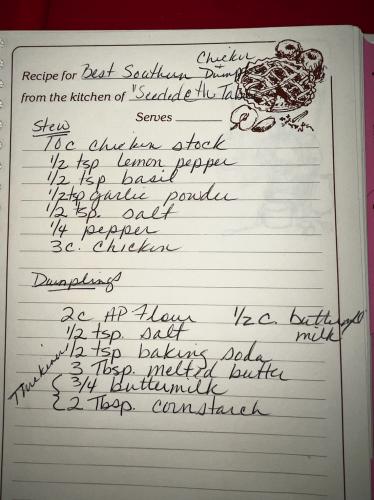 Chicken
Recipe for Best Southern & Dumplings
from the kitchen of "Seeded @ the Table
Serves
Stew
10c chicken stock
1/2 tsp lemon pepper
1/2 tsp basil
1/2 tsp garlic powder
1/2 tsp. salt
1/4 pepper
3c. chicken
Dumplings
2c AP Flour 1/2 c. buttermilk
1/2 tsp. salt
1/2 tsp baking soda
3 Tbsp. melted butter
3/4 buttermilk
2 Tbsp. cornstarch